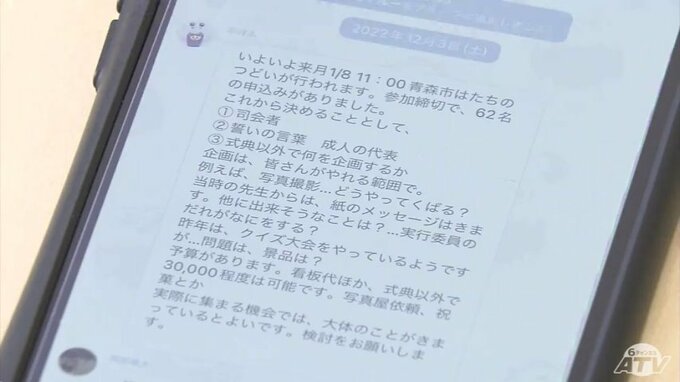 2022年12月3日(土)
いよいよ来月1/8 11：00青森市はたちの
つどいが行われます。参加締切で、62名
の申込みがありました。
これから決めることとして、
①司会者
②誓いの言葉　成人の代表
③式典以外で何を企画するか
企画は、皆さんがやれる範囲で。
例えば、写真撮影…どうやってくばる？
当時の先生からは、紙のメッセージはきま
す。他に出来そうなことは？…実行委員の
だれがなにをする？
昨年は、クイズ大会をやっているようです
が…問題は、景品は？
予算があります。看板代ほか、式典以外で
30,000程度は可能です。写真屋依頼、祝
菓とか
実際に集まる機会では、大体のことがきま
っているとよいです。検討をお願いしま
す。
6チャンネル
ATV